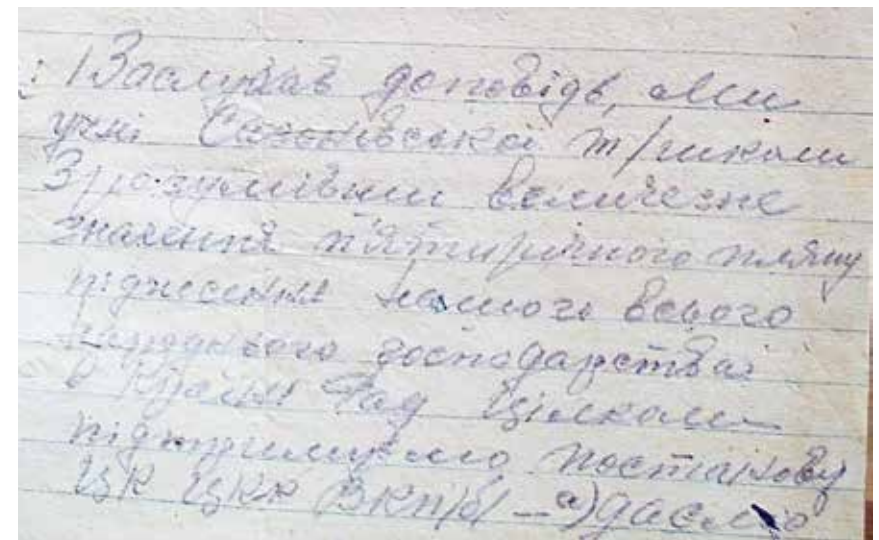 : 1 Заслухав доповідь, ми
учні Сазонівської т/школи
Зрозумівши величезне
значення п'ятирічного пляну
піднесення нашого всього
народнього господарства
в Країні Рад Цілком
підтримуємо постанову
ЦК ЦКК ВКП/б/ – а) даємо